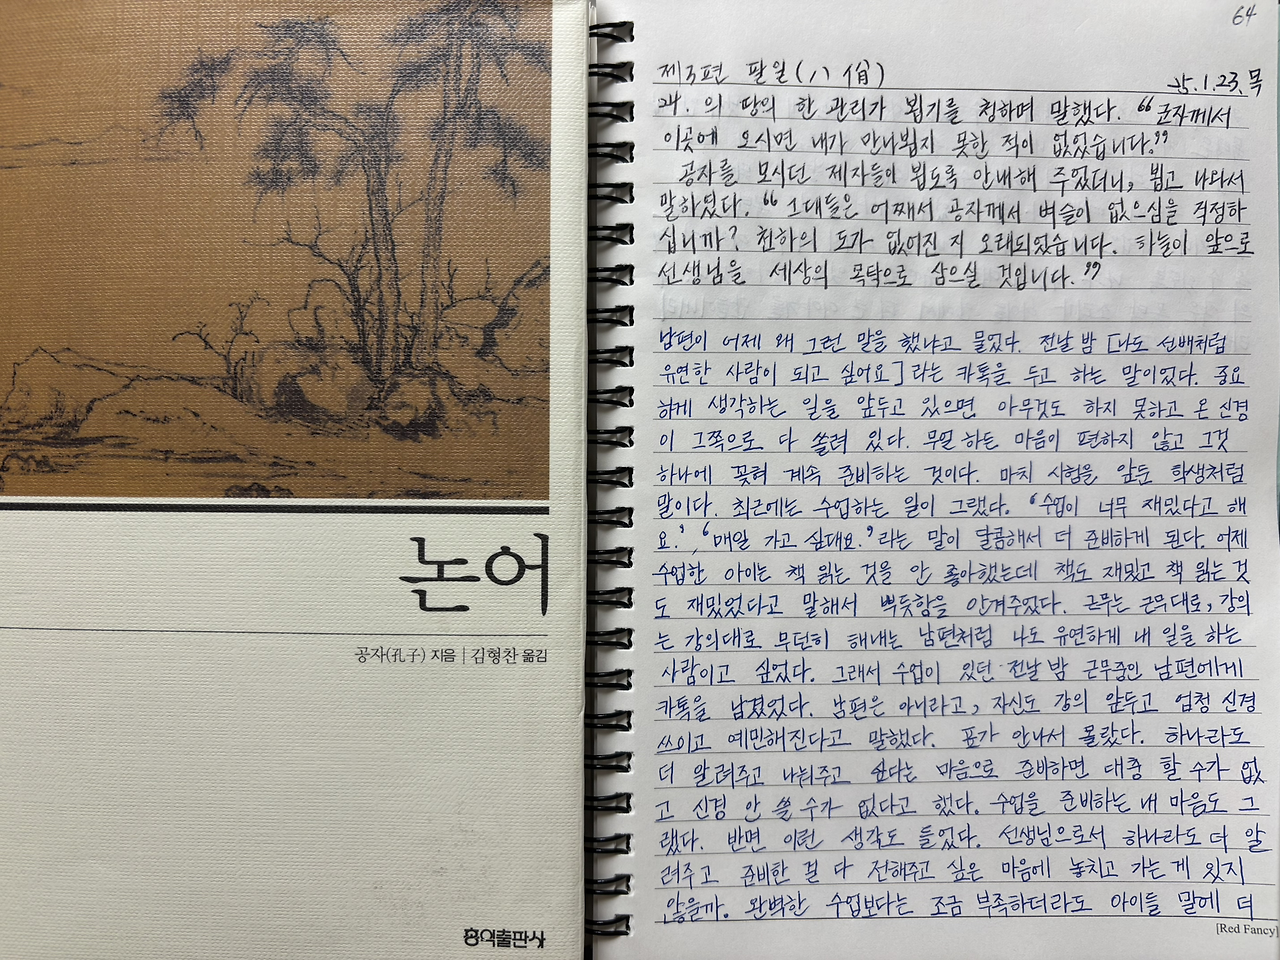 논어
공자(孔子) 지음 | 김형찬 옮김
홍익출판사
64
제3편 팔일(八佾)
25.1.23.목
24. 의 땅의 한 관리가 뵙기를 청하며 말했다. "군자께서
이곳에 오시면 내가 만나뵙지 못한 적이 없었습니다."
공자를 모시던 제자들이 뵙도록 안내해 주었더니, 뵙고 나와서
말하였다. "그대들은 어째서 공자께서 벼슬이 없으심을 걱정하
십니까? 천하의 도가 없어진 지 오래되었습니다. 하늘이 앞으로
선생님을 세상의 목탁으로 삼으실 것입니다."
남편이 어제 왜 그런 말을 했냐고 물었다. 전날 밤 [나도 선배처럼
유연한 사람이 되고 싶어요]라는 카톡을 두고 하는 말이었다. 중요
하게 생각하는 일을 앞두고 있으면 아무것도 하지 못하고 온 신경
이 그쪽으로 다 쏠려 있다. 무얼 하든 마음이 편하지 않고 그것
하나에 꽂혀 계속 준비하는 것이다. 마치 시험을 앞둔 학생처럼
말이다. 최근에는 수업하는 일이 그랬다. '수업이 너무 재밌다고 해
요.', '매일 가고 싶대요.'라는 말이 달콤해서 더 준비하게 된다. 어제
수업한 아이는 책 읽는 것을 안 좋아했는데 책도 재밌고 책 읽는 것
도 재밌었다고 말해서 뿌듯함을 안겨주었다. 근무는 근무대로, 강의
는 강의대로 무던히 해내는 남편처럼 나도 유연하게 내 일을 하는
사람이고 싶었다. 그래서 수업이 있던 전날 밤 근무중인 남편에게
카톡을 남겼었다. 남편은 아니라고, 자신도 강의 앞두고 엄청 신경
쓰이고 예민해진다고 말했다. 표가 안나서 몰랐다. 하나라도
더 알려주고 나눠주고 싶다는 마음으로 준비하면 대충 할 수가 없
고 신경 안 쓸 수가 없다고 했다. 수업을 준비하는 내 마음도 그
랬다. 반면 이런 생각도 들었다. 선생님으로서 하나라도 더 알
려주고 준비한 걸 다 전해주고 싶은 마음에 놓치고 가는 게 있지
않을까. 완벽한 수업보다는 조금 부족하더라도 아이들 말에 더
[Red Fancy]